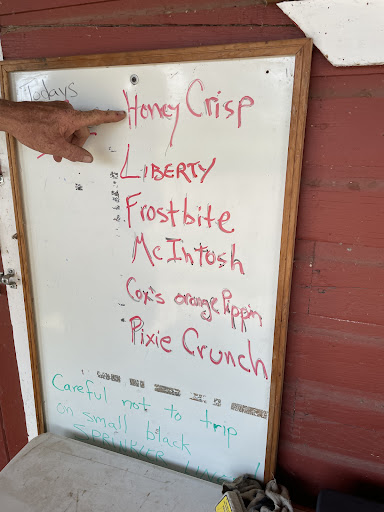 Todays
Honey Crisp
LIBERTY
Frostbite
McIntosh
Cox's orange Pippin
Pixie Crunch
Careful not to trip
on small black
SPRINKLER